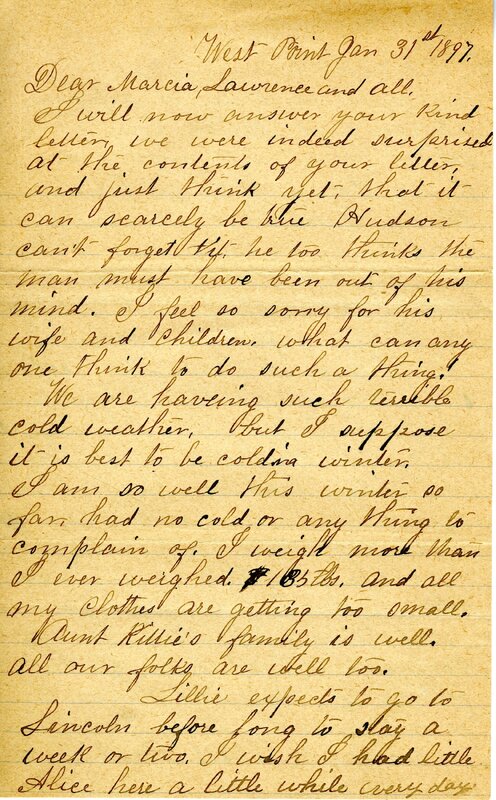 West Point Jan 31st 1897.
Dear Marcia, Lawrence and all.
I will now answer your kind
letter, we were indeed surprised
at the contents of your letter,
and just think yet, that it
can scarcely be true Hudson
can't forget it, he too thinks the
man must have been out of his
mind. I feel so sorry for his
wife and children. what can any
one think to do such a thing!
We are haveing such terrible
cold weather, but I suppose
it is best to be cold in winter.
I am so well this winter so
far, had no cold or any thing to
complain of. I weigh more than
I ever weighed. 135 lbs. and all
my clothes are getting too small.
Aunt Kittie's family is well.
all our folks are well too.
Lillie expects to go to
Lincoln before long to stay a
week or two. I wish I had little
Alice here a little while every day